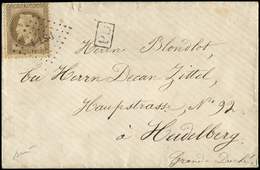 PD
Herrn Blondlot,
bei Herrn Decan Zittel,
Haupstrasse, No 92
à Heidelberg
(Grand Duché